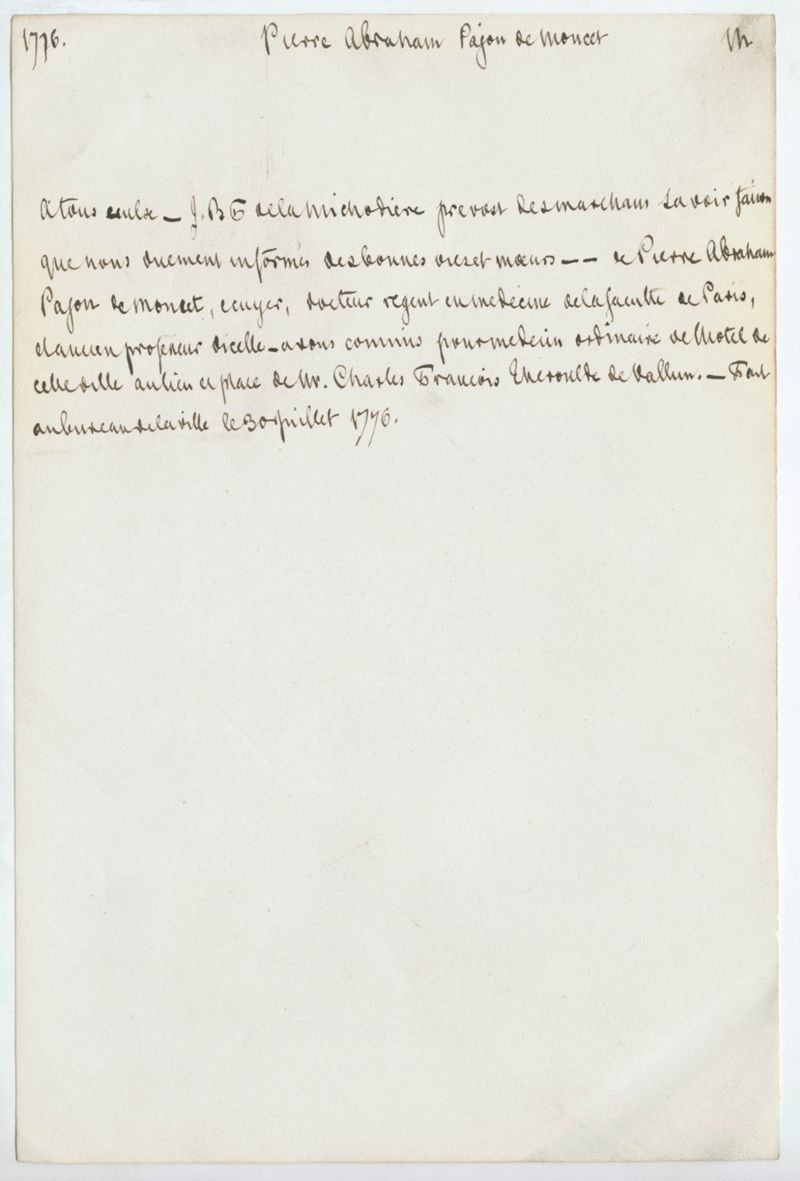 1776. Pierre Abraham Pajon de Moncet M
A tous ceulx — J. B F de la Michodiere prevost des marchans savoir faisons
que nous duement informés des bonnes vies et mœurs — — de Pierre Abraham
Pajon de Moncet, ecuyer, docteur regent en medecine de la faculte de Paris,
et ancien professeur dicelle — avons commis pour medecin ordinaire de l'hotel de
cette ville au lieu et place de Mr. Charles François Theroulde de Vallun. — Fait
au bureau de la ville le 30 juillet 1776.